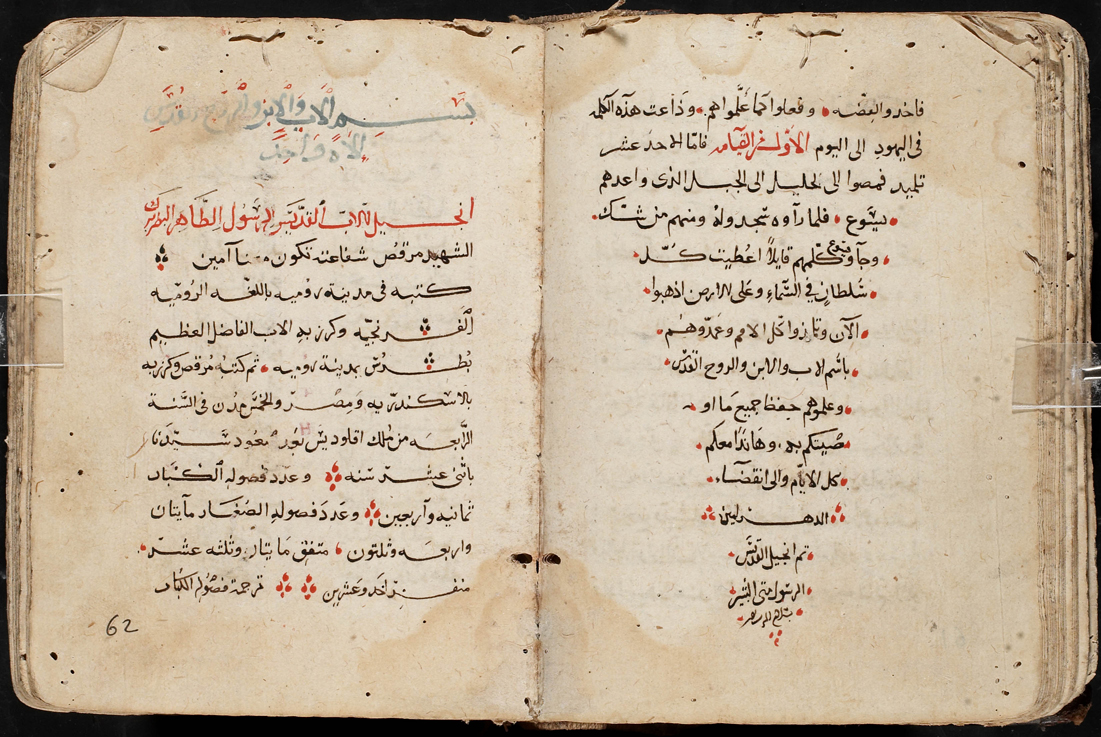 فاخدوا الفضه وفعلوا كما علموهم. وذاعت هذه الكلمه
فى اليهود الى اليوم الاول من القيامه فامّا الاحد عشر
تلميد فمضوا الى الجليل الى الجبل الذى واعدهم
يسوع فلما رآوه سجدوا له ومنهم من شك.
وجآ يسوع وكلمهم قايلاً اعُطيت كل
سُلطان في السَّماءِ وعَلى الارض اذهبوا
الآن وتلمذوا كل الامم وعمدوهُم
باسم الاب والابن والروح القدس
وعلموهم حفظ جميع مَا او
صَيتكم به. وهَانذا معكم
كل الايام والى انقضآء
الدهر امين
تم انجيل القديس
الرسول متى البشير
بسلام من الرب
بسم الاب والابن والروح القدس
الاه واحد
انجيل الاب القديس الرسول الطاهر البطريرك
الشهيد مرقص شفاعته تكون معنا آمين
كتبه في مدينة روميه باللغه الروميه
الفرنجيّه وكرز به الاب الفاضل العظيم
بُطرس بمدينة روميه تم كتبهُ مرقص وكرز به
بالاسكندريه ومصر والخمس مدن في السَّنة
الرَّابعه من مُلك اقلوديس بعد صعود سيدنا
باثنى عشر سنه وعدد فصوله الكبار
ثمانيه وآربعين وعدد فصوله الصغار مآيتان
واربعه وثلثون متفق مايتان وثلثه عشر
منفرد احد وعشرين ترجمة فصُوله الكبار
62